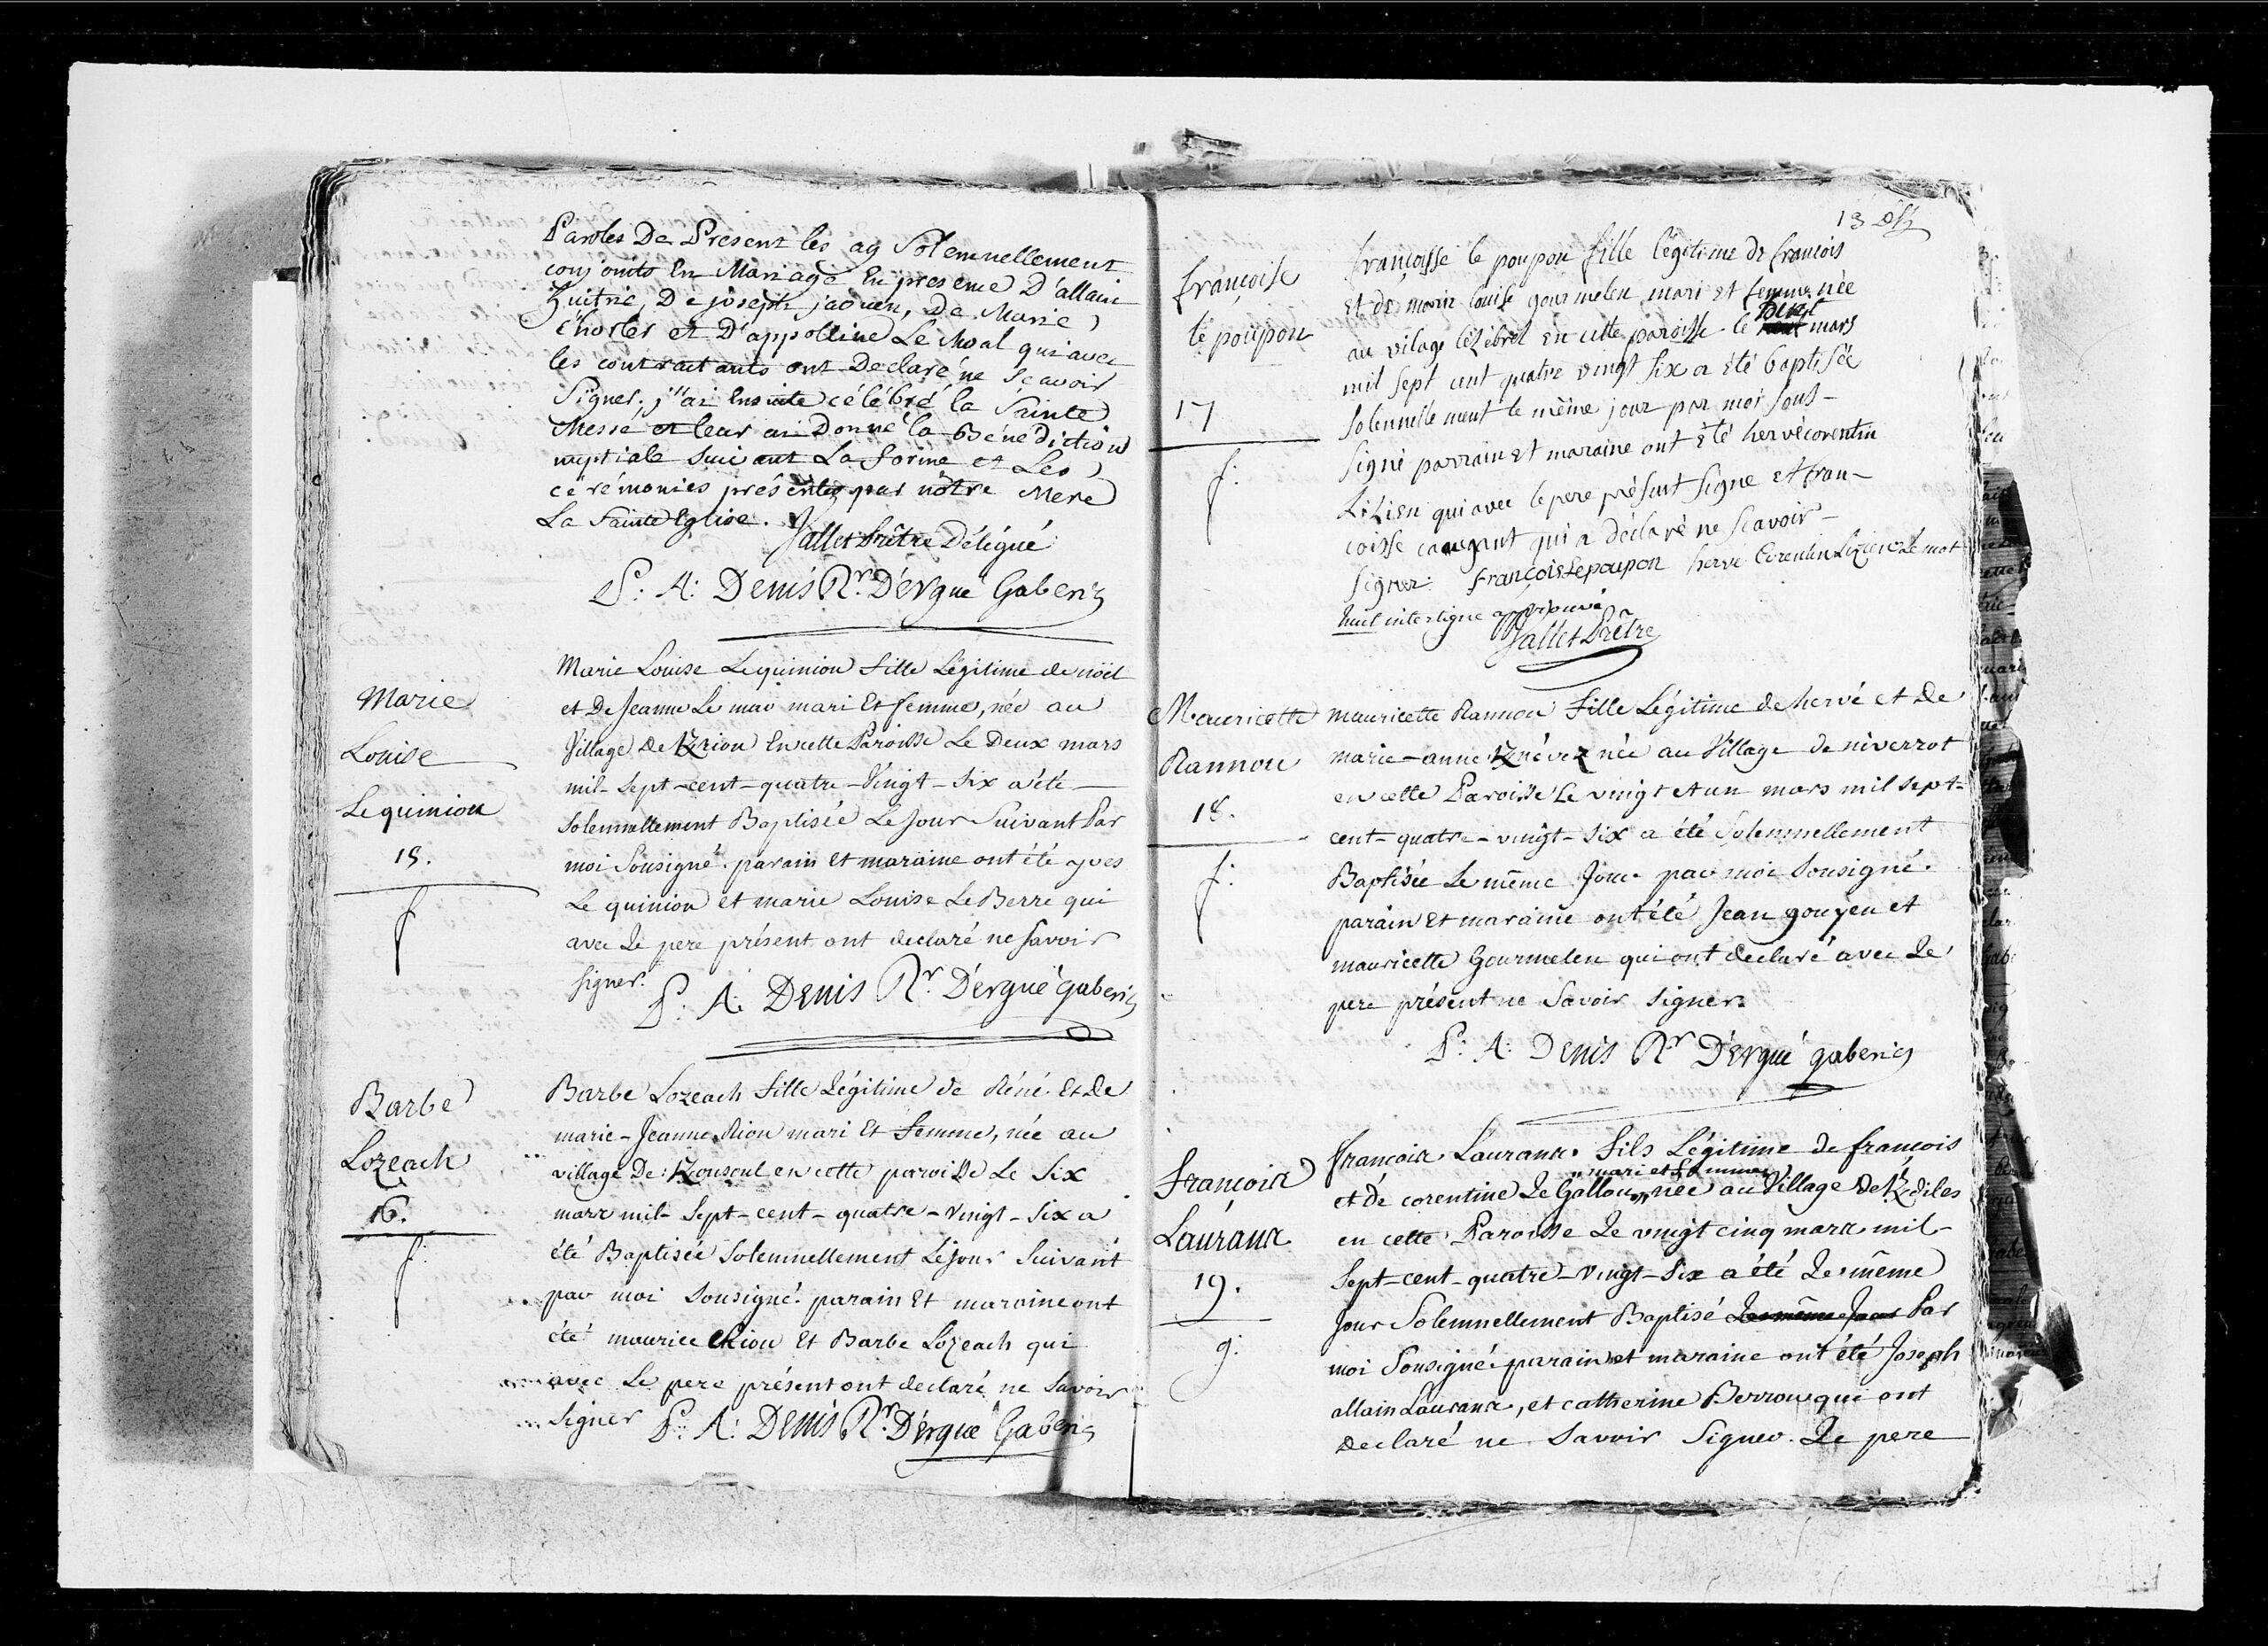 Paroles De Present les ay Solemnellement
conjoints En Mariage En presence D'allain
huitric, De joseph jaouen, De Marie
Chorles et D'appolline Le Moal qui avec
les contractants ont Declaré ne Scavoir
Signer. j'ai Ensuite célébré la Sainte
Messe et leur ai Donné la Bénédiction
nuptiale Suivant La forme et Les
cérémonies présentes par nôtre Mere
La Sainte Eglise.
Jallet Prêtre Délégué
P: A: Denis Rr. D'Ergué Gaberic
Marie
Louise
Lequinion
15.
f
Marie Louise Lequinion Fille Légitime de noël
et De Jeanne Le mao mari Et femme, née au
Village De Kzrion En cette Paroisse Le Deux mars
mil-Sept-cent-quatre-Vingt-Six a été
Solemnellement Baptisée Le Jour Suivant Par
moi Sousigné. parain et maraine ont été yves
Le quinion et marie Louise Le Berre qui
avec Le pere présent ont declaré ne Savoir
signer.
P: A: Denis Rr. D'ergué gaberic
Barbe
Lozeach
16.
f:
Barbe Lozeach Fille Légitime de Réné Et De
marie-Jeanne Rion mari Et Femme, née au
village De Kzonsoul en cette paroisse Le Six
mars mil-Sept-cent-quatre-vingt-Six a
été Baptisée Solemnellement Le Jour Suivant
par moi Sousigné. parain Et maraine ont
été maurice Rion Et Barbe Lozeach qui
avec Le pere présent ont declaré ne Savoir
Signer
P: A: Denis Rr. D'ergué Gaberic
13
françoise
le poupon
17
f:
françoisse le poupon fille légitime de francois
et de marie louise gourmelen mari et femme née
au vilage lézébrel en cette paroisse le huit mars
mil sept cent quatre vingt six a été baptisée
solennellement le même jour par moi sous-
signé parrain et maraine ont été hervé corentin
Lizien qui avec le pere présent signe et fran-
coisse caugant qui a déclaré ne scavoir
signer: françois Lepoupon herve Corentin Lizien Le mot
huit interligne approuvé
Jallet Prêtre
Mauricette
Rannou
18.
f:
mauricette Rannou Fille Légitime de hervé et De
marie-anne Kznévez née au Village de niverrot
en cette Paroisse Le vingt et un mars mil Sept-
cent-quatre-vingt-Six a été Solemnellement
Baptisée Le même Jour par moi Sousigné.
parain Et maraine ont été Jean gouyen et
mauricette Gourmelen qui ont declaré avec Le
pere présent ne Savoir Signer.
P: A: Denis Rr D'Ergué gaberic
François
Laurans
19.
g:
François Laurans. Fils Légitime de francois
"mari et femme"
et de corentine Le Gallou,, née au Village De Kzdiles
en cette Paroisse Le vingt cinq mars mil-
Sept-cent-quatre-Vingt-Six a été Le même
Jour Solemnellement Baptisé Le même Jour Par
moi Sousigné. parain et maraine ont été Joseph
allain Laurans, et catherine Berrou qui ont
declaré ne Savoir Signer. Le pere